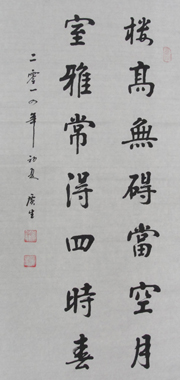 楼高無礙當空月
室雅常得四時春
二零一四年初夏廣生